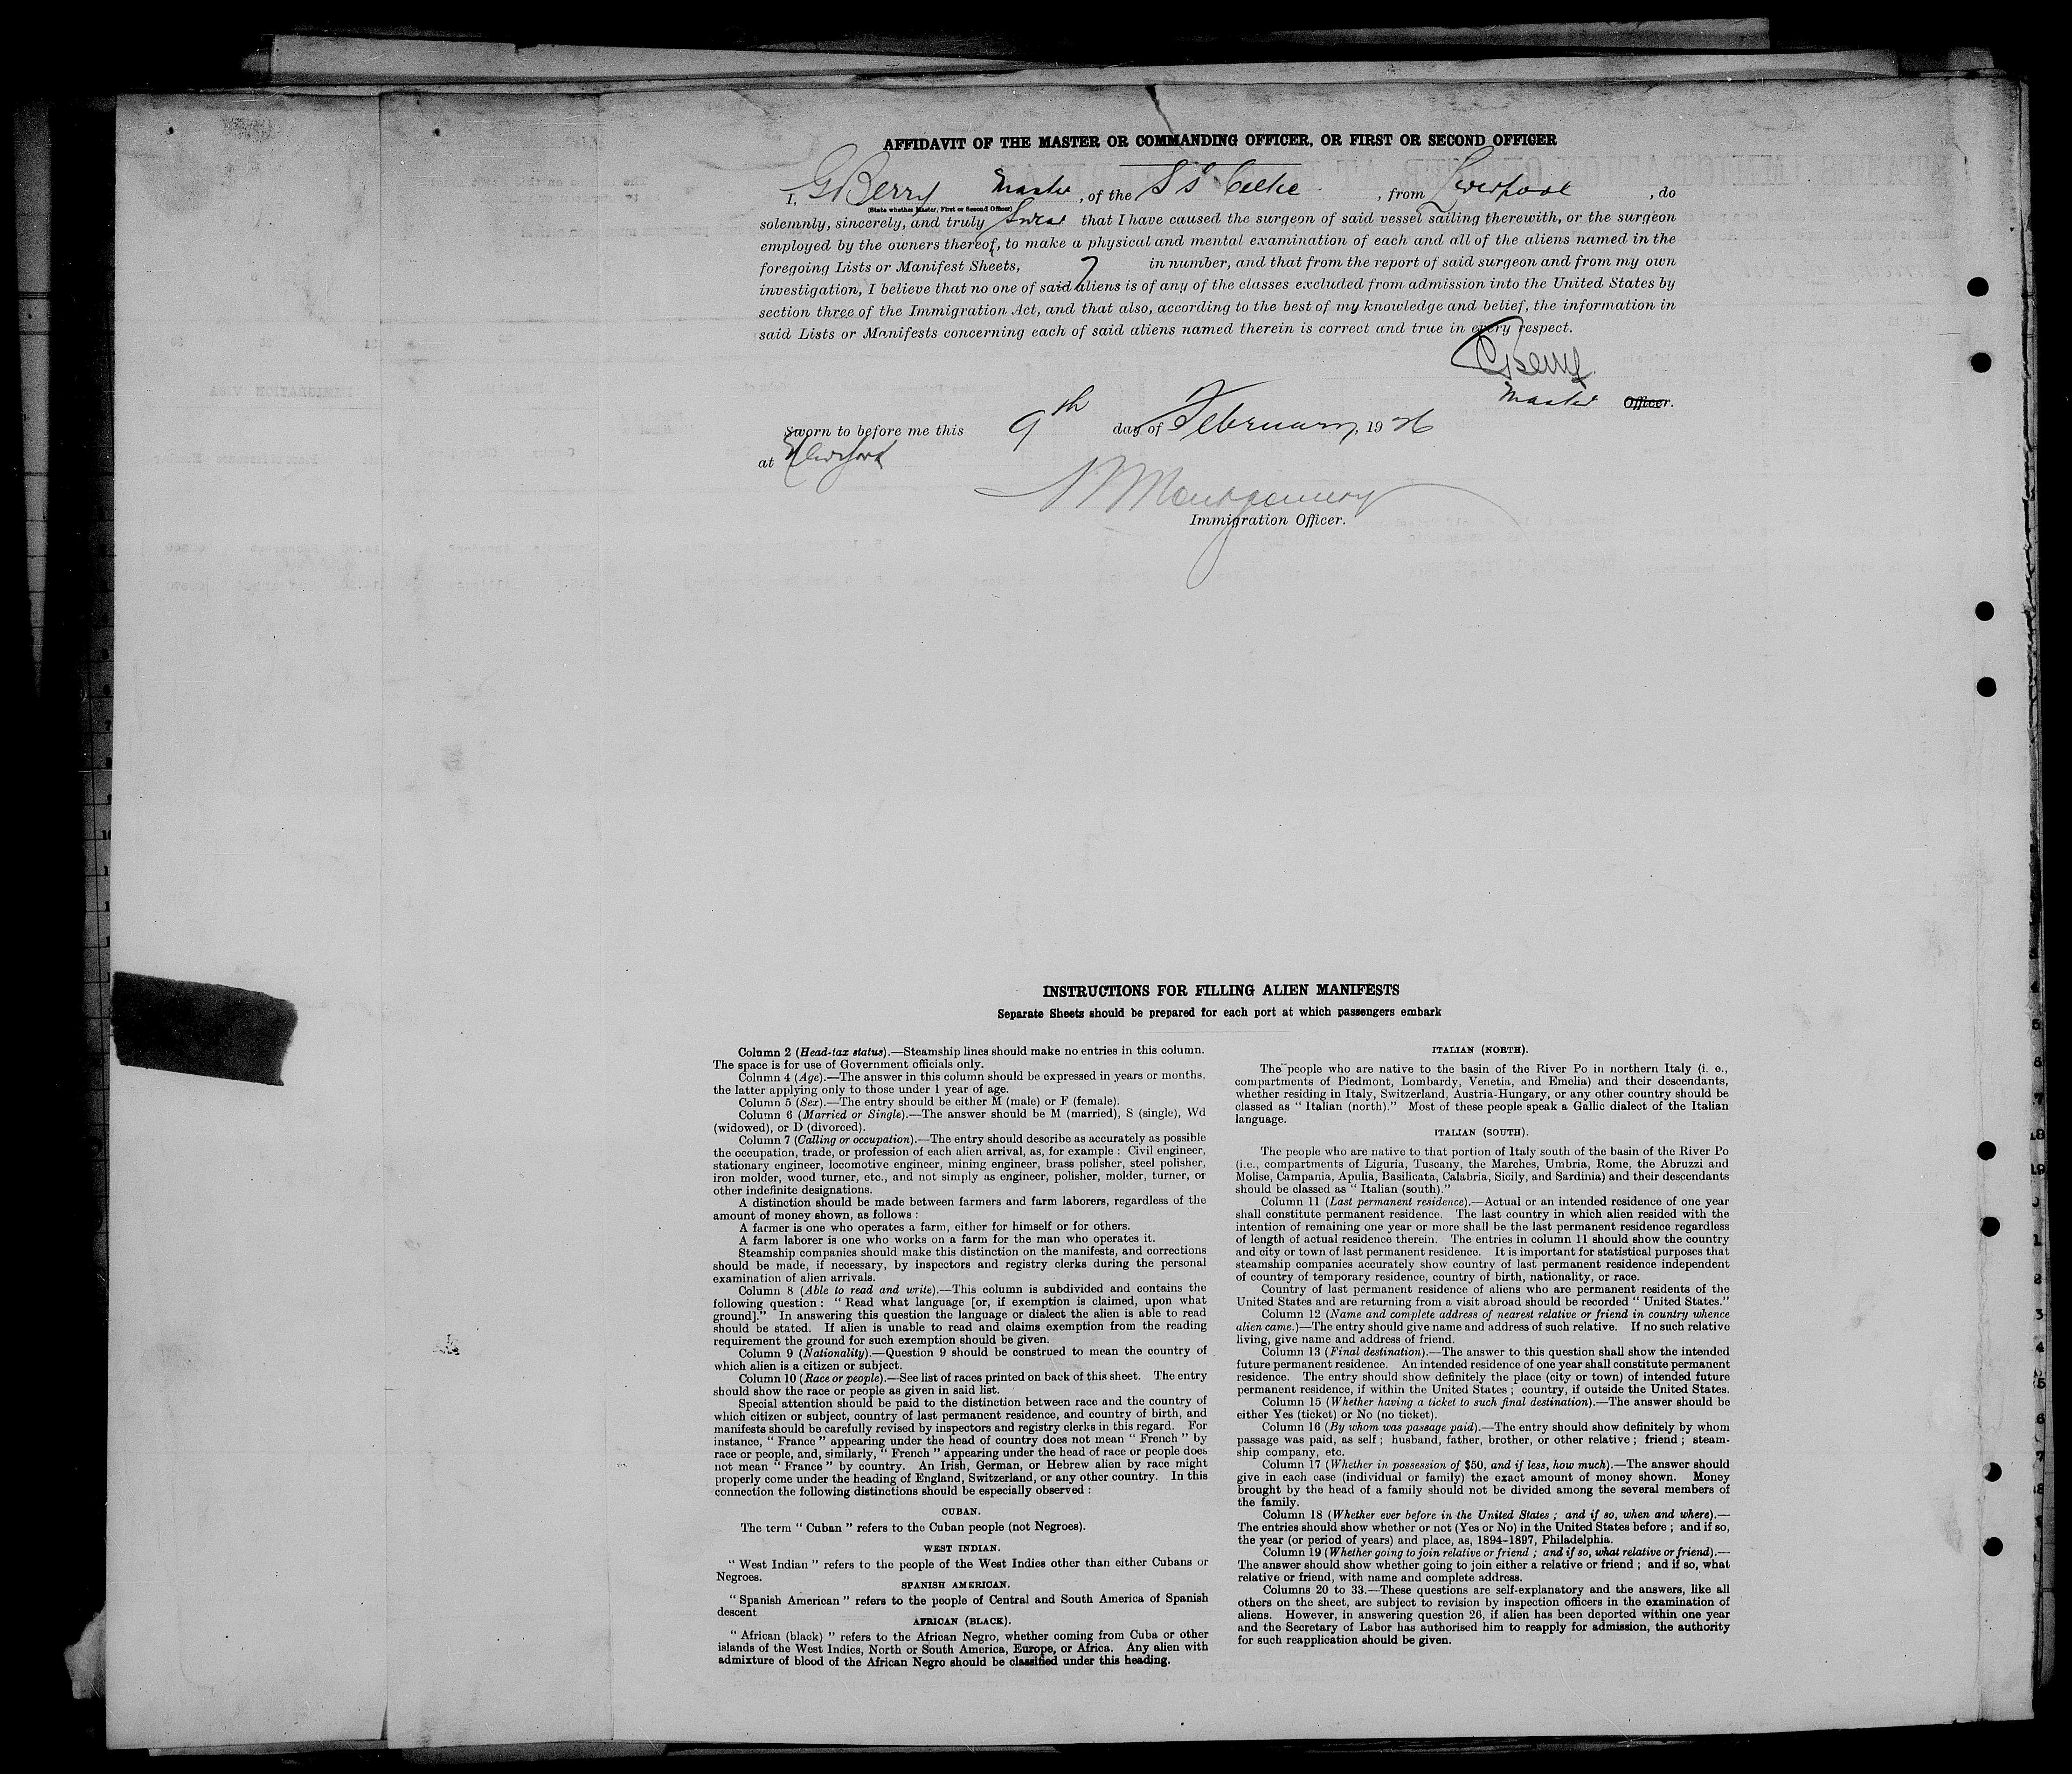 AFFIDAVIT OF THE MASTER OR COMMANDING OFFICER, OR FIRST OR SECOND OFFICER
I, G Berry Master, of the SS Celtic, from Liverpool, do
(State whether Master, First or Second Officer)
solemnly, sincerely, and truly Swear that I have caused the surgeon of said vessel sailing therewith, or the surgeon
employed by the owners thereof, to make a physical and mental examination of each and all of the aliens named in the
foregoing Lists or Manifest Sheets, 7 in number, and that from the report of said surgeon and from my own
investigation, I believe that no one of said aliens is of any of the classes excluded from admission into the United States by
section three of the Immigration Act, and that also, according to the best of my knowledge and belief, the information in
said Lists or Manifests concerning each of said aliens named therein is correct and true in every respect.
G Berry
Master Officer.
Sworn to before me this 9th day of February, 1926
at New York
Montgomery
Immigration Officer.
INSTRUCTIONS FOR FILLING ALIEN MANIFESTS
Separate Sheets should be prepared for each port at which passengers embark
Column 2 (Head-tax status).—Steamship lines should make no entries in this column.
The space is for use of Government officials only.
Column 4 (Age).—The answer in this column should be expressed in years or months,
the latter applying only to those under 1 year of age.
Column 5 (Sex).—The entry should be either M (male) or F (female).
Column 6 (Married or Single).—The answer should be M (married), S (single), Wd
(widowed), or D (divorced).
Column 7 (Calling or occupation).—The entry should describe as accurately as possible
the occupation, trade, or profession of each alien arrival, as, for example : Civil engineer,
stationary engineer, locomotive engineer, mining engineer, brass polisher, steel polisher,
iron molder, wood turner, etc., and not simply as engineer, polisher, molder, turner, or
other indefinite designations.
A distinction should be made between farmers and farm laborers, regardless of the
amount of money shown, as follows :
A farmer is one who operates a farm, either for himself or for others.
A farm laborer is one who works on a farm for the man who operates it.
Steamship companies should make this distinction on the manifests, and corrections
should be made, if necessary, by inspectors and registry clerks during the personal
examination of alien arrivals.
Column 8 (Able to read and write).—This column is subdivided and contains the
following question : “ Read what language [or, if exemption is claimed, upon what
ground].” In answering this question the language or dialect the alien is able to read
should be stated. If alien is unable to read and claims exemption from the reading
requirement the ground for such exemption should be given.
Column 9 (Nationality).—Question 9 should be construed to mean the country of
which alien is a citizen or subject.
Column 10 (Race or people).—See list of races printed on back of this sheet. The entry
should show the race or people as given in said list.
Special attention should be paid to the distinction between race and the country of
which citizen or subject, country of last permanent residence, and country of birth, and
manifests should be carefully revised by inspectors and registry clerks in this regard. For
instance, “ France ” appearing under the head of country does not mean “ French ” by
race or people, and, similarly, “ French ” appearing under the head of race or people does
not mean “ France ” by country. An Irish, German, or Hebrew alien by race might
properly come under the heading of England, Switzerland, or any other country. In this
connection the following distinctions should be especially observed :
CUBAN.
The term “ Cuban ” refers to the Cuban people (not Negroes).
WEST INDIAN.
“ West Indian ” refers to the people of the West Indies other than either Cubans or
Negroes.
SPANISH AMERICAN.
“ Spanish American ” refers to the people of Central and South America of Spanish
descent
AFRICAN (BLACK).
“ African (black) ” refers to the African Negro, whether coming from Cuba or other
islands of the West Indies, North or South America, Europe, or Africa. Any alien with
admixture of blood of the African Negro should be classified under this heading.
ITALIAN (NORTH).
The people who are native to the basin of the River Po in northern Italy (i. e.,
compartments of Piedmont, Lombardy, Venetia, and Emelia) and their descendants,
whether residing in Italy, Switzerland, Austria-Hungary, or any other country should be
classed as “ Italian (north).” Most of these people speak a Gallic dialect of the Italian
language.
ITALIAN (SOUTH).
The people who are native to that portion of Italy south of the basin of the River Po
(i.e., compartments of Liguria, Tuscany, the Marches, Umbria, Rome, the Abruzzi and
Molise, Campania, Apulia, Basilicata, Calabria, Sicily, and Sardinia) and their descendants
should be classed as “ Italian (south).”
Column 11 (Last permanent residence).—Actual or an intended residence of one year
shall constitute permanent residence. The last country in which alien resided with the
intention of remaining one year or more shall be the last permanent residence regardless
of length of actual residence therein. The entries in column 11 should show the country
and city or town of last permanent residence. It is important for statistical purposes that
steamship companies accurately show country of last permanent residence independent
of country of temporary residence, country of birth, nationality, or race.
Country of last permanent residence of aliens who are permanent residents of the
United States and are returning from a visit abroad should be recorded “ United States.”
Column 12 (Name and complete address of nearest relative or friend in country whence
alien came.)—The entry should give name and address of such relative. If no such relative
living, give name and address of friend.
Column 13 (Final destination).—The answer to this question shall show the intended
future permanent residence. An intended residence of one year shall constitute permanent
residence. The entry should show definitely the place (city or town) of intended future
permanent residence, if within the United States ; country, if outside the United States.
Column 15 (Whether having a ticket to such final destination).—The answer should be
either Yes (ticket) or No (no ticket).
Column 16 (By whom was passage paid).—The entry should show definitely by whom
passage was paid, as self ; husband, father, brother, or other relative ; friend ; steam-
ship company, etc.
Column 17 (Whether in possession of $50, and if less, how much).—The answer should
give in each case (individual or family) the exact amount of money shown. Money
brought by the head of a family should not be divided among the several members of
the family.
Column 18 (Whether ever before in the United States ; and if so, when and where).—
The entries should show whether or not (Yes or No) in the United States before ; and if so,
the year (or period of years) and place, as, 1894–1897, Philadelphia.
Column 19 (Whether going to join relative or friend ; and if so, what relative or friend).—
The answer should show whether going to join either a relative or friend ; and if so, what
relative or friend, with name and complete address.
Columns 20 to 33.—These questions are self-explanatory and the answers, like all
others on the sheet, are subject to revision by inspection officers in the examination of
aliens. However, in answering question 26, if alien has been deported within one year
and the Secretary of Labor has authorised him to reapply for admission, the authority
for such reapplication should be given.